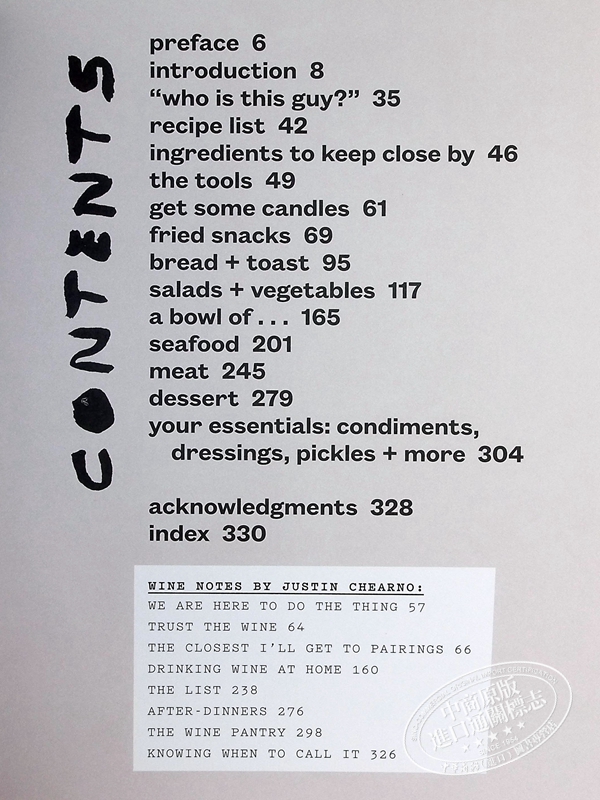 CONTENTS
preface 6
introduction 8
“who is this guy?” 35
recipe list 42
ingredients to keep close by 46
the tools 49
get some candles 61
fried snacks 69
bread + toast 95
salads + vegetables 117
a bowl of . . . 165
seafood 201
meat 245
dessert 279
your essentials: condiments,
dressings, pickles + more 304
acknowledgments 328
index 330
WINE NOTES BY JUSTIN CHEARNO:
WE ARE HERE TO DO THE THING 57
TRUST THE WINE 64
THE CLOSEST I’LL GET TO PAIRINGS 66
DRINKING WINE AT HOME 160
THE LIST 238
AFTER-DINNERS 276
THE WINE PANTRY 298
KNOWING WHEN TO CALL IT 326
中商原版
進口通關標志